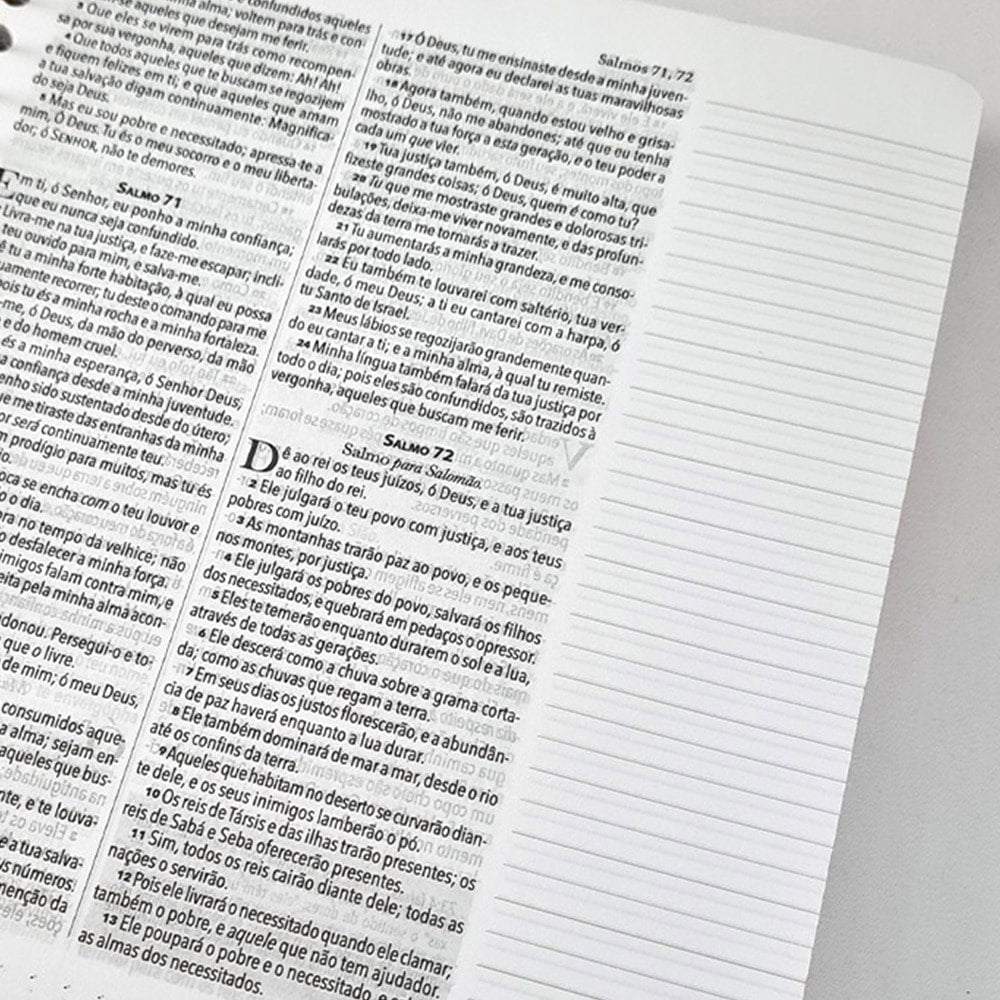 Salmos 71, 72
confundidos aqueles
minha alma; voltem para trás e con-
aqueles que desejam me ferir.
3 Que eles se virem para trás como recompen-
sa por sua vergonha, aqueles que dizem: Ah! Ah!
4 Que todos aqueles que te buscam se regozijem
e fiquem felizes em ti; e que aqueles que amam
a tua salvação digam continuamente: Magnifica-
do seja Deus.
5 Mas eu sou pobre e necessitado; apressa-te a
mim, Ó Deus. Tu és o meu socorro e o meu liberta-
dor; ó SENHOR, não te demores.
SALMO 71
Em ti, ó Senhor, eu ponho a minha confiança;
que eu nunca seja confundido.
Livra-me na tua justiça, e faze-me escapar; incli-
teu ouvido para mim, e salva-me.
ê tu a minha forte habitação, à qual eu possa
uamente recorrer; tu deste o comando para me
pois tu és a minha rocha e a minha fortaleza.
-me, ó Deus, da mão do perverso, da mão
e do homem cruel.
és a minha esperança, ó Senhor Deus;
a confiança desde a minha juventude.
enho sido sustentado desde do útero;
ue me tiraste das entranhas da minha
or será continuamente teu.
m prodígio para muitos, mas tu és
oca se encha com o teu louvor e
o o dia.
ora no tempo da velhice; não
o desfalecer a minha força.
imigos falam contra mim, e
eita pela minha alma acon-
donou. Persegui-o e to-
que o livre.
de mim; ó meu Deus,
consumidos aque-
a alma; sejam en-
aqueles que bus-
nte, e te louva-
e a tua salva-
us números.
menção da
17 Ó Deus, tu me ensinaste desde a minha juven-
tude; e até agora eu declarei as tuas maravilhosas
obras.
18 Agora também, quando estou velho e grisa-
lho, ó Deus, não me abandones; até que eu tenha
mostrado a tua força a esta geração, e o teu poder a
cada um que vier.
19 Tua justiça também, ó Deus, é muito alta, que
fizeste grandes coisas; ó Deus, quem é como tu?
20 Tu que me mostraste grandes e dolorosas tri-
bulações, deixa-me viver novamente, e das profun-
dezas da terra me tornarás a trazer.
21 Tu aumentarás a minha grandeza, e me conso-
larás por todo lado.
22 Eu também te louvarei com saltério, tua ver-
dade, ó meu Deus; a ti eu cantarei com a harpa, ó
tu Santo de Israel.
23 Meus lábios se regozijarão grandemente quan-
do eu cantar a ti; e a minha alma, à qual tu remiste.
24 Minha língua também falará da tua justiça por
todo o dia; pois eles são confundidos, são trazidos à
vergonha, aqueles que buscam me ferir.
SALMO 72
Salmo para Salomão.
Dê ao rei os teus juízos, ó Deus, e a tua justiça
ao filho do rei.
2 Ele julgará o teu povo com justiça, e aos teus
pobres com juízo.
3 As montanhas trarão paz ao povo, e os peque-
nos montes, por justiça.
4 Ele julgará os pobres do povo, salvará os filhos
dos necessitados, e quebrará em pedaços o opressor.
5 Eles te temerão enquanto durarem o sol e a lua,
através de todas as gerações.
6 Ele descerá como a chuva sobre a grama corta-
da; como as chuvas que regam a terra.
7 Em seus dias os justos florescerão, e a abundân-
cia de paz haverá enquanto a lua durar.
8 Ele também dominará de mar a mar, desde o rio
até os confins da terra.
9 Aqueles que habitam no deserto se curvarão dian-
te dele, e os seus inimigos lamberão o pó.
10 Os reis de Társis e das ilhas trarão presentes; os
reis de Sabá e Seba oferecerão presentes.
11 Sim, todos os reis cairão diante dele; todas as
nações o servirão.
12 Pois ele livrará o necessitado quando ele clamar;
também o pobre, e aquele que não tem ajudador.
13 Ele poupará o pobre e o necessitado, e
as almas dos necessitados.